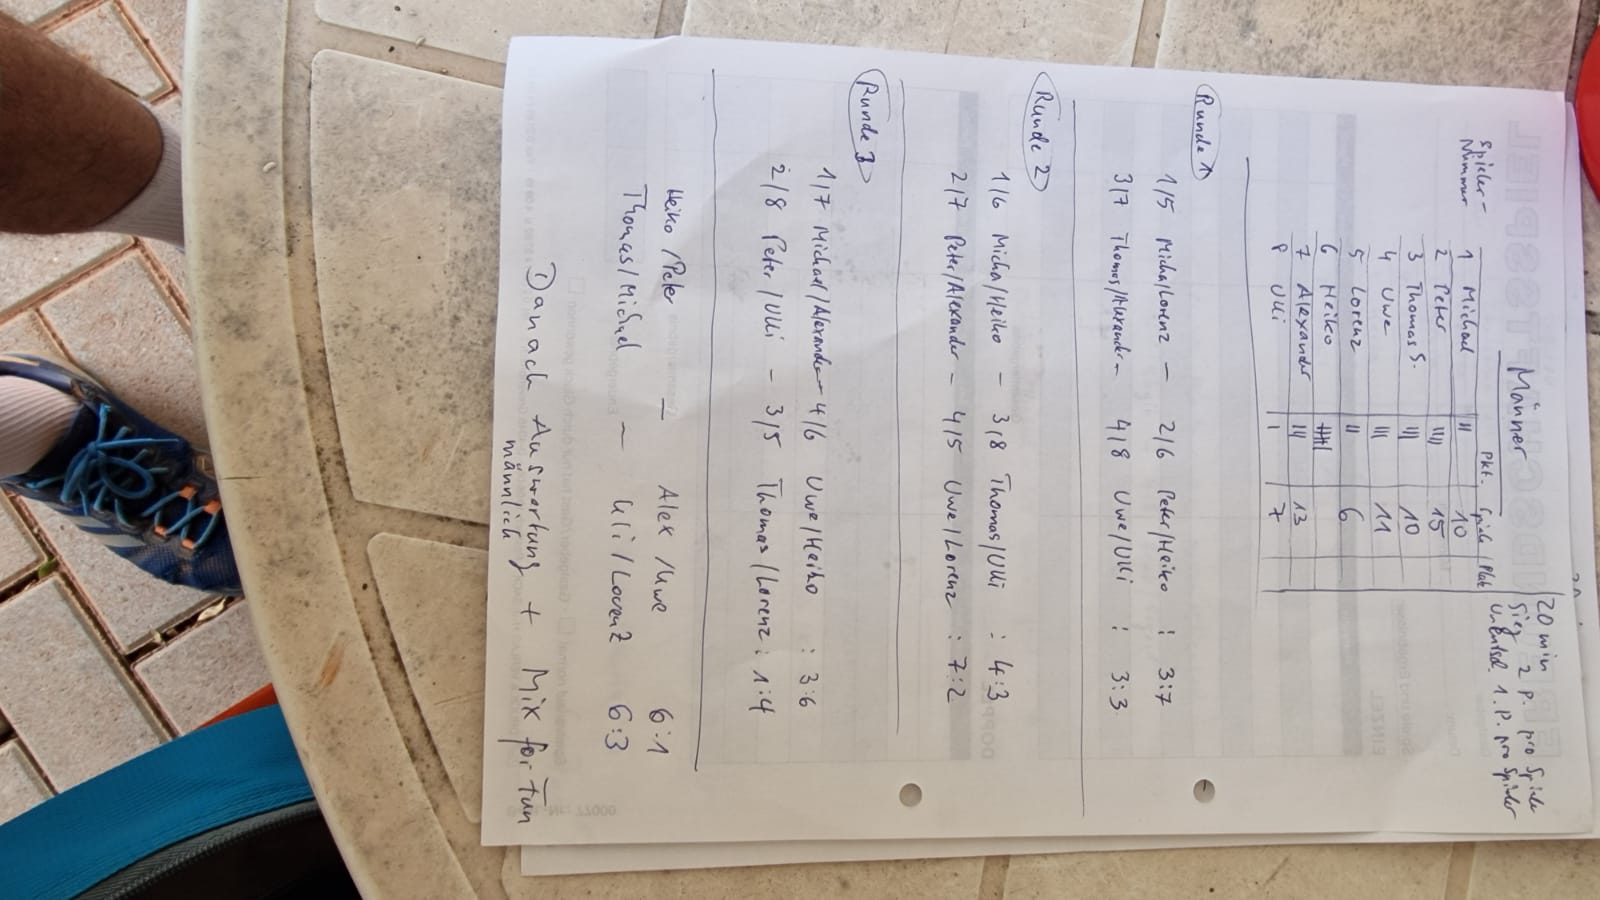 Männer
20 min
Sieg 2 P. pro Spieler
Unentsch. 1. P. pro Spieler
Spieler-
Nummer
Pkt. Spiele Platz
1 Michael || 10
2 Peter |||| 15
3 Thomas S. ||| 10
4 Uwe ||| 11
5 Lorenz || 6
6 Heiko
7 Alexander ||| 13
8 Ulli | 7
Runde 1
1/5 Micha/Lorenz – 2/6 Peter/Heiko : 3:7
3/7 Thomas/Alexander – 4/8 Uwe/Ulli : 3:3
Runde 2
1/6 Micha/Heiko – 3/8 Thomas/Ulli : 4:3
2/7 Peter/Alexander – 4/5 Uwe/Lorenz : 7:2
Runde 3
1/7 Michael/Alexander – 4/6 Uwe/Heiko : 3:6
2/8 Peter/Ulli – 3/5 Thomas/Lorenz : 1:4
Heiko/Peter – Alex/Uwe 6:1
Thomas/Michael – Uli/Lorenz 6:3
Danach Auswertung + Mix for Tun
männlich